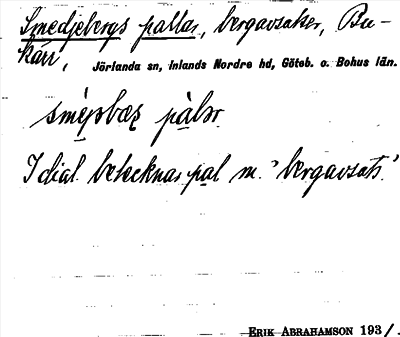 Smedjebergs pallar, bergavsatser, Bu-
kärr,
Jörlanda sn, Inlands Nordre hd, Göteb. o. Bohus län.
I dial. betecknas pal m. "bergavsats".
ERIK ABRAHAMSON 193/.